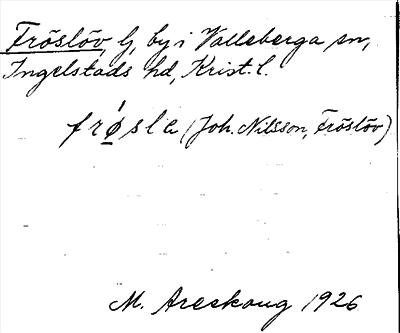 Fröslöv, by i Valleberga sn,
Ingelstads hd, Krist. l.
frǿsla (Joh. Nilsson, Fröslöv)
M. Areskoug 1926